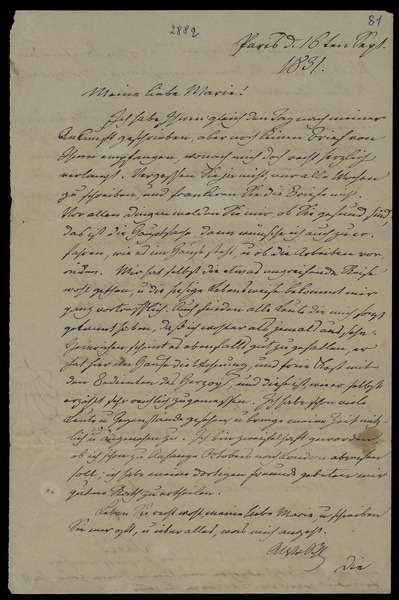 2882
81
Paris d. 16ten Sept.
1831.
Meine liebe Marie!
Ich habe Ihnen gleich den Tag nach meiner
Ankunft geschrieben, aber noch keinen Brief von
Ihnen empfangen, wonach mich doch recht herzlich
verlangt. Vergessen Sie ja nicht, mir alle Wochen
zu schreiben, und frankiren Sie die Briefe nicht.
Vor allen Dingen melden Sie mir, ob Sie gesund sind,
das ist die Hauptsache, dann wünsche ich auch zu er-
fahren, wie es im Hause steht, u ob die Arbeiten vor-
rücken. Mir hat selbst die etwas angreifende Reise
wohl gethan, u die hiesige Lebensweise bekommt mir
ganz vortrefflich. Auch finden alle Leute die mich sonst
gekannt haben, daß ich wohler als jemals aussehe.
Heinrichen scheint es ebenfalls gut zu gefallen, er
hat hier im Hause die Wohnung, und freie Kost mit
den Bedienten des Herzogs, und diese ist wie er selbst
erzählt sehr reichlich zugemessen. Ich habe schon viele
Leute u Gegenstände gesehen, u bringe meine Zeit nütz-
lich u angenehm zu. Ich bin zweifelhaft geworden
ob ich schon zu Anfange Octobers nach London abreisen
soll, ich habe meine dortigen Freunde gebeten mir
guten Rath zu ertheilen.
Leben Sie recht wohl meine liebe Marie, u schreiben
Sie mir oft, u über alles, was mich angeht.
Die